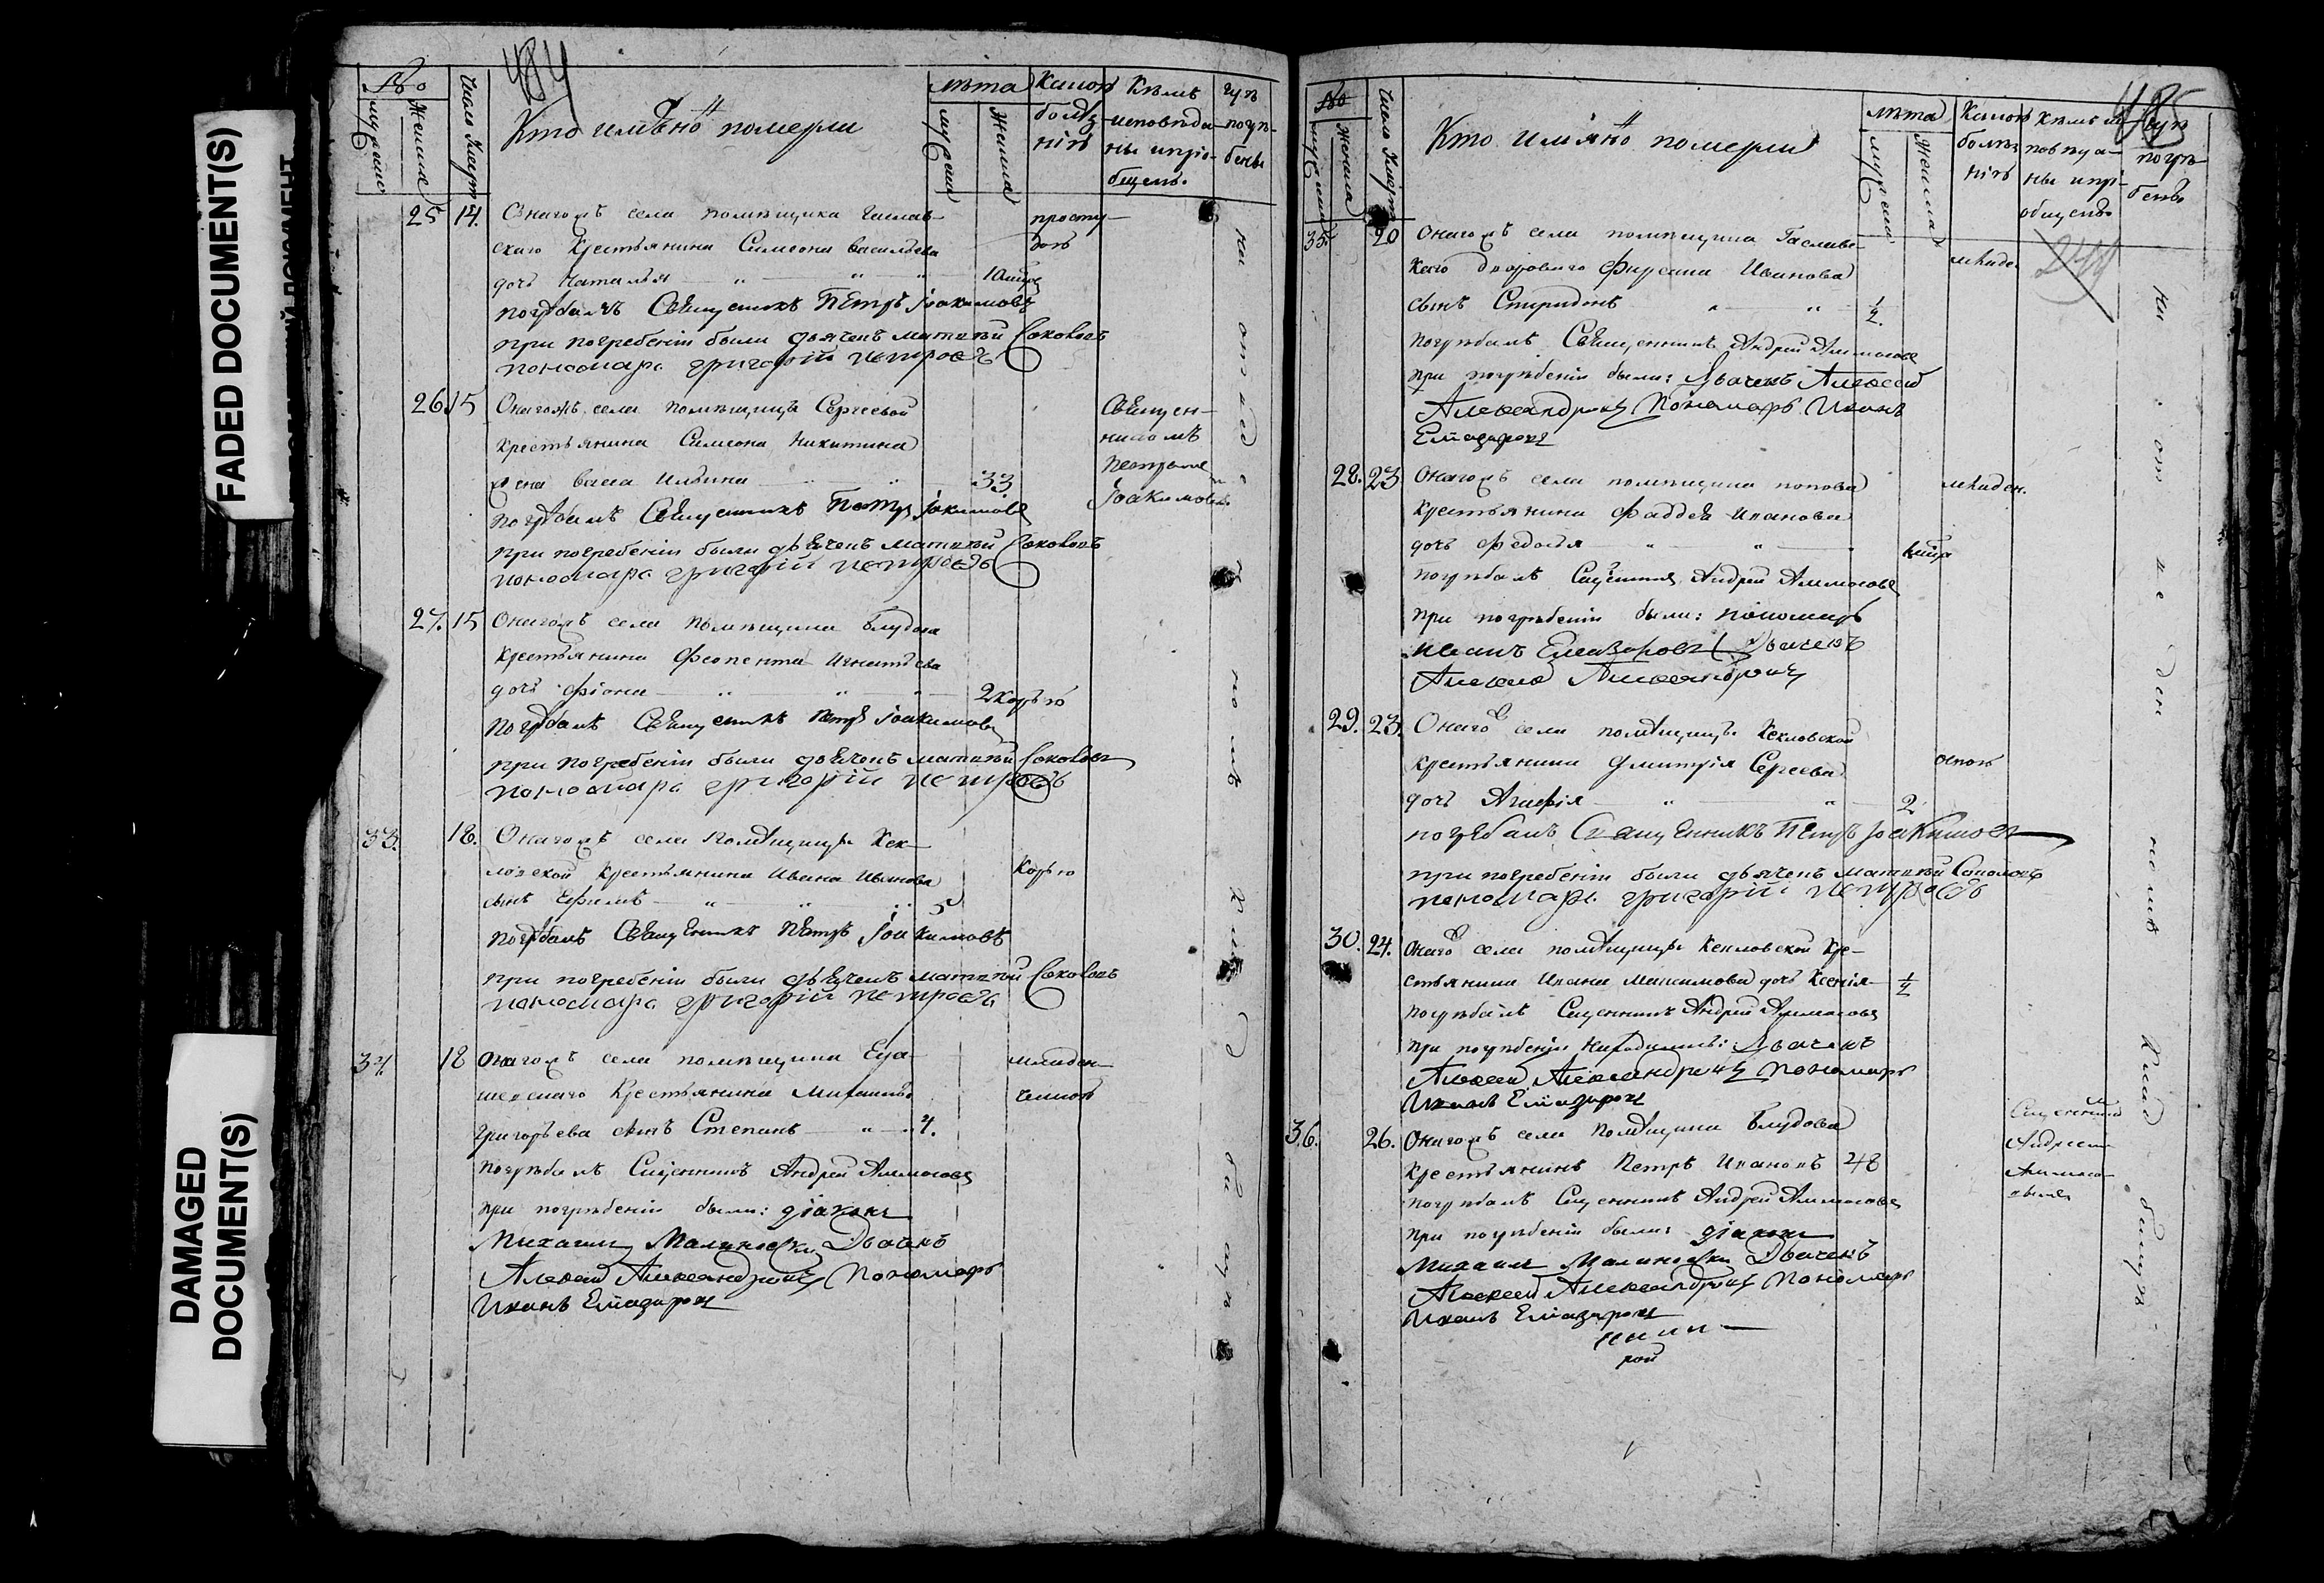 FADED DOCUMENT(S)
DAMAGED
DOCUMENT(S)
484
№
мужеска
Женска
Число Смерт
Кто имѣно померли
лѣта
мужеска
Женска
Какою
болѣз
нію
Кѣмъ
исповѣда
ны и прiо-
бщены.
гдѣ
погре-
бены
25 14. Онагожъ села помѣщика
скаго Крестьянина Симеона Васильева
дочь Наталья
просту-
дою
погрѣбалъ Свѣщенникъ Петръ Іоакимовъ
при погребеніи были дьячекъ матвѣй Соколовъ
пономарь григорій петровъ
26. 15 Онагожъ села помѣщицы Сергеевой
Крестьянина Симеона Никитина
жена Васса Ильина 33
Свѣщен-
никомъ
Петромъ
Іоакимовымъ
погрѣбалъ Свѣщенникъ Петръ Іоакимовъ
при погребеніи были дьячекъ матвѣй Соколовъ
пономарь григорій петровъ
27. 15 Онагожъ села помѣщика Блудова
Крестьянина Игнатьева
дочь Фіона 2 корью
погрѣбалъ Свѣщенникъ Петръ Іоакимовъ
при погребеніи были дьячекъ матвѣй Соколовъ
пономарь григорій петровъ
33. 18. Онагожъ села помѣщицы Кек-
ловской Крестьянина Ивана Иванова
сынъ Ефимъ 5
Корью
погрѣбалъ Свѣщенникъ Петръ Іоакимовъ
при погребеніи были дьячекъ матвѣй Соколовъ
пономарь григорій петровъ
34. 18 Онагожъ села помѣщика
Крестьянина Михаила
Григорьева сынъ Степанъ 4.
младен-
ческою
погрѣбалъ Сщенникъ Андрей Аммосовъ
при погрѣбеніи были: діаконъ
Михаилъ Малиновскій Дьячекъ
Алексей Александровъ Пономарь
Иванъ Елиазаровъ
на отведенномъ кладбищѣ
485
№
мужеска
Женска
Число Смерт
Кто имяно померли
лѣта
мужеска
Женска
Какою
болѣз
нію
Кѣмъ ис
повѣда-
ны и прі-
общены
гдѣ
погре-
бены
244
35. 20 Онагожъ села помѣщика
скаго двороваго Фирсана Иванова
сынъ Спиридонъ 1/2.
младен.
погрѣбалъ Свѣщенникъ Андрей Аммосовъ
при погрѣбеніи были: Дьячекъ Алексей
Александровъ Пономарь Иванъ
Елиазаровъ
28. 23 Онагожъ села помѣщика попова
Крестьянина Фаддея Иванова
дочь Федосья
младен.
погрѣбалъ Сщенникъ Андрей Аммосовъ
при погрѣбеніи были: пономарь
Иванъ Елеазаровъ Дьячекъ
Алексей Александровъ
29. 23. Онаго села помѣщицы Кекловской
крестьянина Димитрія Сергеева
дочь Агафія 2
оспою
погребалъ Священникъ Петръ Іоакимовъ
при погребеніи были дьячекъ матвѣй Соколовъ
пономарь григорій петровъ
30. 24. Онаго села помѣщицы Кекловской Кре-
стьянина Ивана Максимова дочь Ксенія 1/2
погрѣбалъ Сщенникъ Андрей Аммосовъ
при погрѣбеніи находились: Дьячекъ
Алексей Александровъ Пономарь
Иванъ Елиазаровъ
36. 26. Онагожъ села помѣщика Блудова
Крестьянинъ Петръ Ивановъ 48
Сщенникомъ
Андреемъ
Аммосо-
вымъ
погрѣбалъ Сщенникъ Андрей Аммосовъ
при погрѣбеніи были: діаконъ
Михаилъ Малиновскій Дьячекъ
Алексей Александровъ Пономарь
Иванъ Елиазаровъ
на отведенномъ кладбищѣ